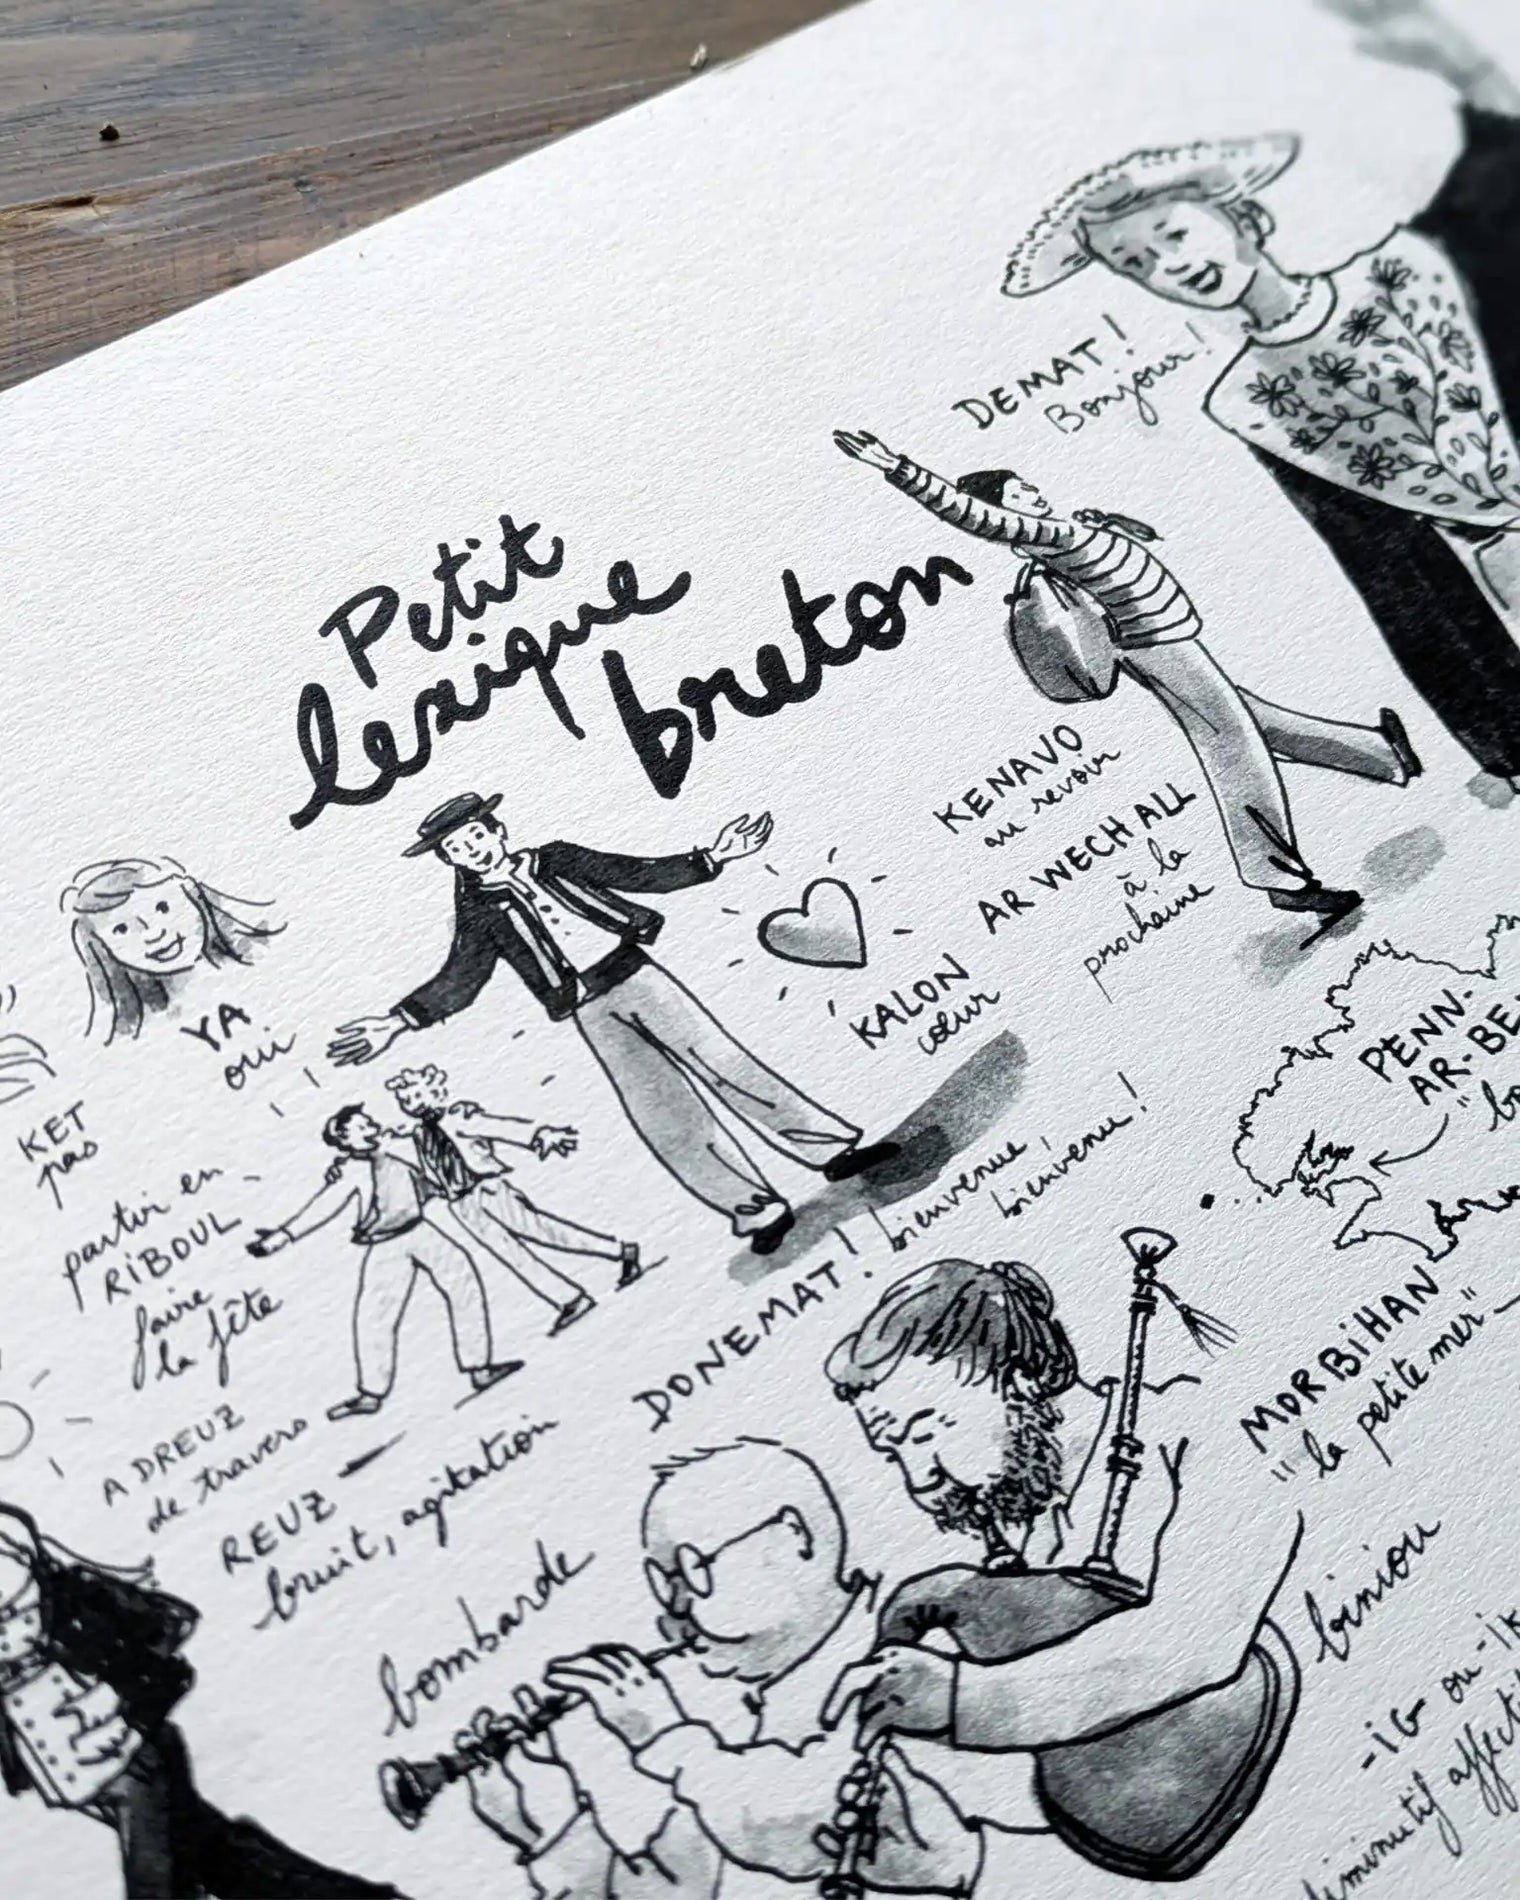 Petit
lexique
breton
DEMAT !
Bonjour !
KENAVO
au revoir
AR WECH ALL
à la
prochaine
KALON
cœur
YA
oui
KET
pas
partir en
RIBOUL
faire
la fête
A DREUZ
de travers
REUZ
bruit, agitation
DONEMAT ! bienvenue,
bienvenue !
PENN-
AR-BE
MORBIHAN
"la petite mer"
bombarde
biniou
-IG ou -IK
diminutif